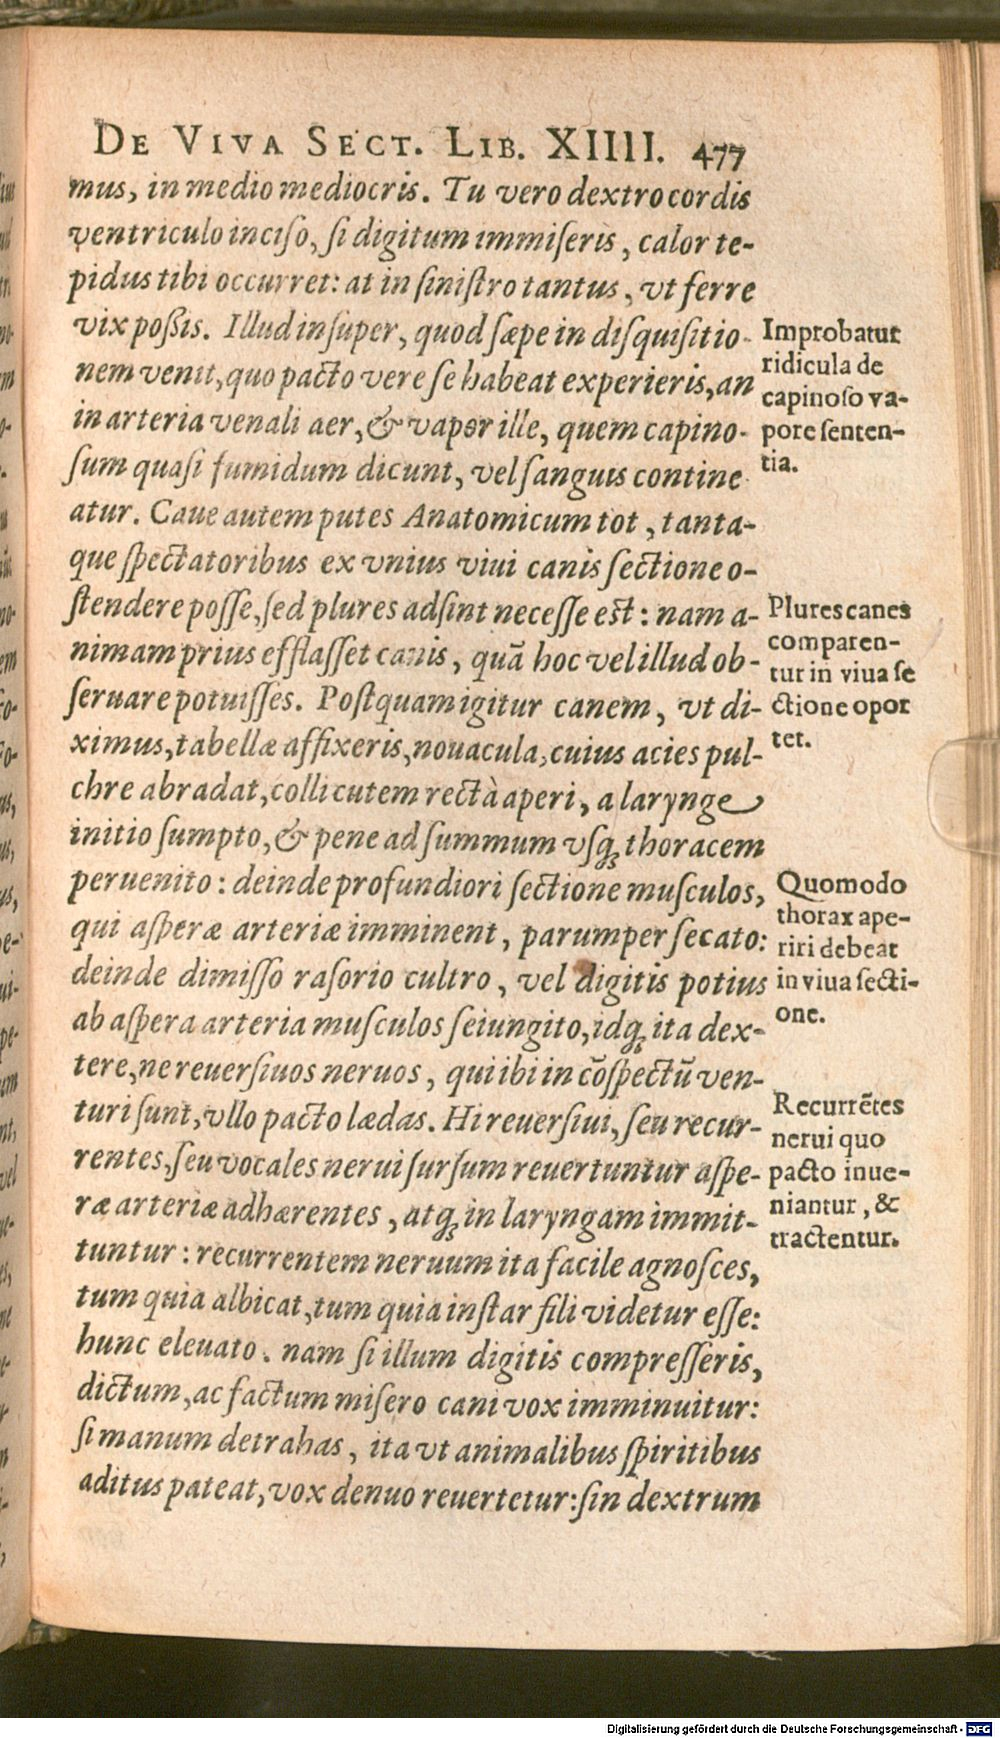 DE VIVA SECT. LIB. XIIII. 477
mus, in medio mediocris. Tu vero dextro cordis
ventriculo inciso, si digitum immiseris, calor te-
pidus tibi occurret: at in sinistro tantus, vt ferre
vix poßis. Illud insuper, quod sæpe in disquisitio-
nem venit, quo pacto vere se habeat experieris, an
in arteria venali aer, & vapor ille, quem capino-
sum quasi fumidum dicunt, vel sanguis contine
atur. Caue autem putes Anatomicum tot, tanta-
que spectatoribus ex vnius viui canis sectione o-
stendere posse, sed plures adsint necesse est: nam a-
nimam prius efflasset canis, quā hoc vel illud ob-
seruare potuisses. Postquam igitur canem, vt di-
ximus, tabellæ affixeris, nouacula, cuius acies pul-
chre abradat, colli cutem rectà aperi, a larynge
initio sumpto, & pene ad summum vsq; thoracem
peruenito: deinde profundiori sectione musculos,
qui asperæ arteriæ imminent, parumper secato:
deinde dimisso rasorio cultro, vel digitis potius
ab aspera arteria musculos seiungito, idq; ita dex-
tere, ne reuersiuos neruos, qui ibi in cōspectū ven-
turi sunt, vllo pacto lædas. Hi reuersiui, seu recur-
rentes, seu vocales nerui sursum reuertuntur aspe-
ræ arteriæ adhærentes, atq; in laryngam immit-
tuntur: recurrentem neruum ita facile agnosces,
tum quia albicat, tum quia instar fili videtur esse:
hunc eleuato. nam si illum digitis compresseris,
dictum, ac factum misero cani vox imminuitur:
si manum detrahas, ita vt animalibus spiritibus
aditus pateat, vox denuo reuertetur: sin dextrum
Improbatur
ridicula de
capinoso va-
pore senten-
tia.
Plures canes
comparen-
tur in viua se
ctione opor
tet.
Quomodo
thorax ape-
riri debeat
in viua secti-
one.
Recurrētes
nerui quo
pacto inue-
niantur, &
tractentur.
Digitalisierung gefördert durch die Deutsche Forschungsgemeinschaft - DFG